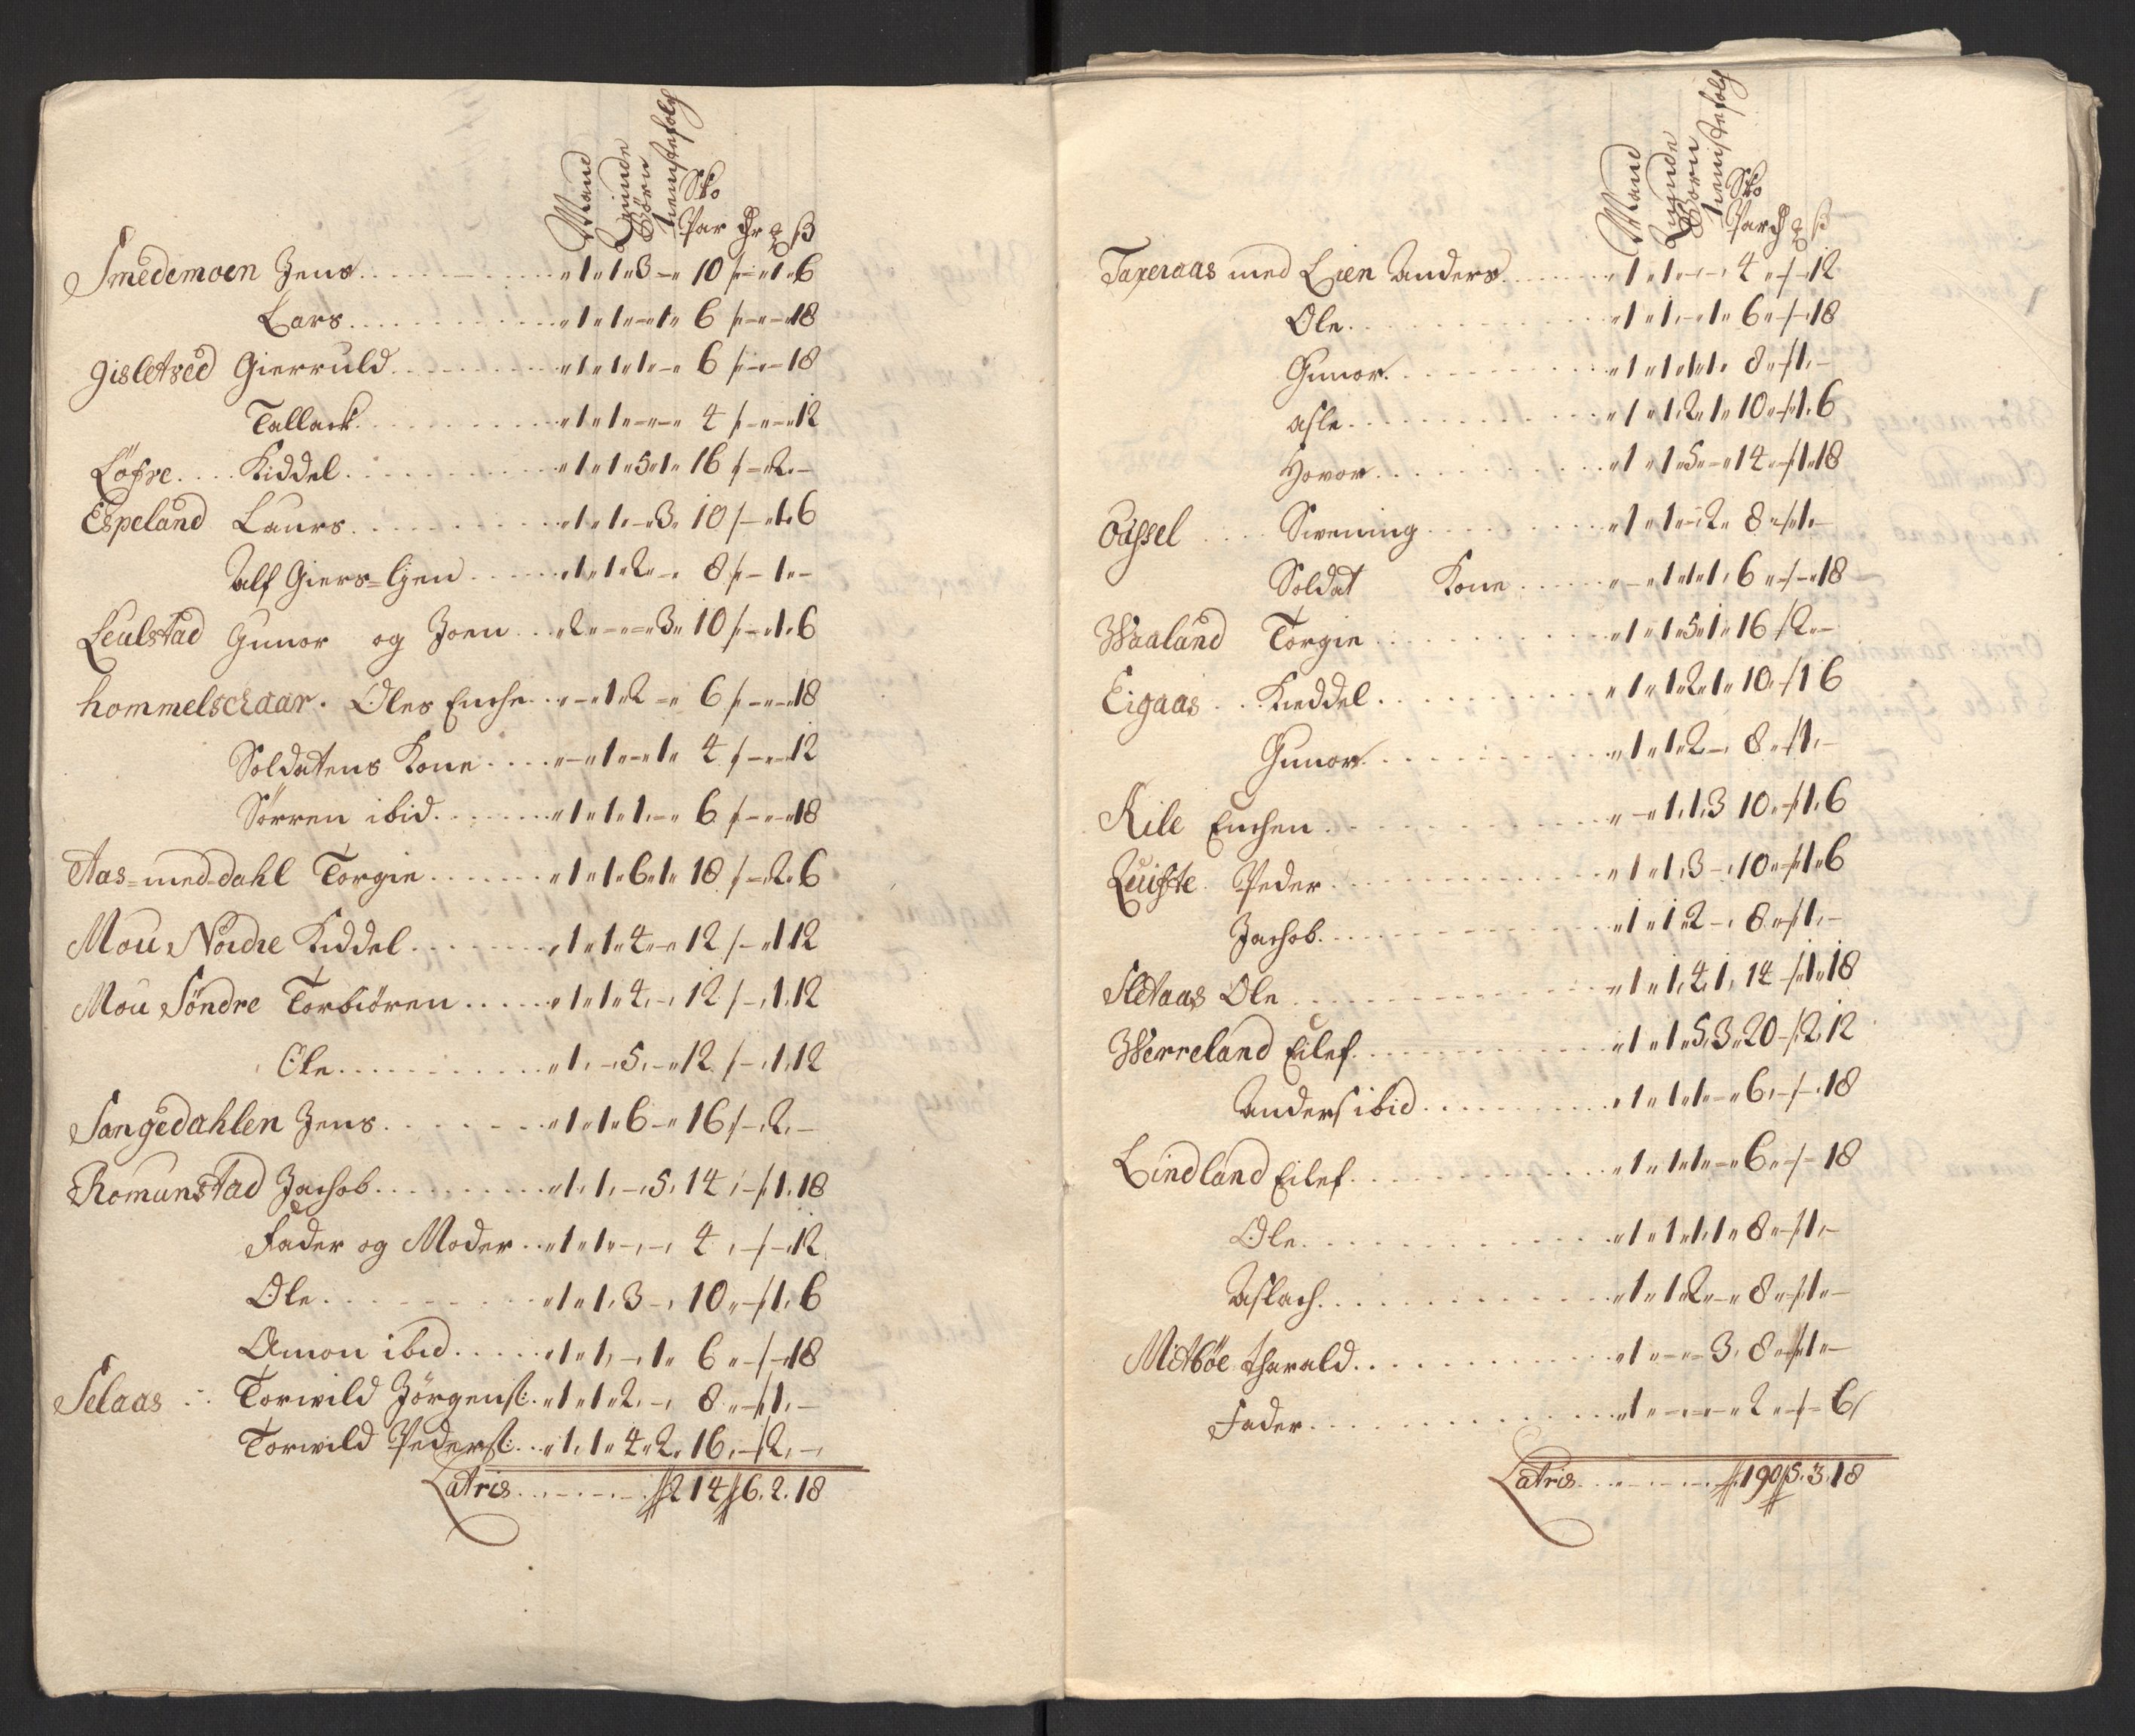 Mand Quinde Börn Tienistefolch Sko Par
Smedemoen Jens 1 1 3 – 10 – 1 6
Lars 1 1 – 1 6 – – 18
Gisletved Gierruld 1 1 1 – 6 – – 18
Tallack 1 1 – – 4 – – 12
Löfre Kiddel 1 1 5 1 16 – 2 –
Espeland Laurs 1 1 – 3 10 – 1 6
Alf Giers= 1 1 2 – 8 – 1 –
Leulstad Gunor og Joen 2 – – 3 10 – 1 6
hommelschaar Oles Enche – 1 2 – 6 – – 18
Soldatens Kone – 1 – 1 4 – – 12
Sörren ibid 1 1 1 – 6 – – 18
Aas=med=dahl Torgie 1 1 6 1 18 – 2 6
Mou Nordre Kiddel 1 1 4 – 12 – 1 12
Mou Söndre Torbiören 1 1 4 – 12 – 1 12
Ole 1 – 5 – 12 – 1 12
Sangedahlen Jens 1 1 6 – 16 – 2 –
Romunstad Jachob 1 1 – 5 14 – 1 18
Fader og Moder 1 1 – – 4 – – 12
Ole 1 1 3 – 10 – 1 6
Amon ibid 1 1 – 1 6 – – 18
Selaas Torwild Jörgens: 1 1 2 – 8 – 1 –
Torwild Peders: 1 1 4 2 16 – 2 –
Latris 214 6. 2. 18
Mand Quinde Börn Tienistefolch Sko Par
Taxeraas med Lien Anders 1 1 – – 4 – – 12
Ole 1 1 – 1 6 – – 18
Gunor 1 1 1 1 8 – 1 –
Asle 1 1 2 1 10 – 1 6
Hovor 1 1 5 – 14 – 1 18
Oussel Swening 1 1 – 2 8 – 1 –
Soldat Kone – 1 1 1 6 – – 18
Waaland Torgie 1 1 5 1 16 2 –
Eigaas Kieddel 1 1 2 1 10 – 1 6
Gunor 1 1 2 – 8 – 1 –
Rile Enchen – 1 1 3 10 – 1 6
Quifte Peder 1 1 3 – 10 – 1 6
Jachob 1 1 2 – 8 – 1 –
Sletaas Ole 1 1 4 1 14 – 1 18
Werreland Eilef 1 1 5 3 20 – 2 12
Anders ibid 1 1 1 – 6 – – 18
Lindland Eilef 1 1 1 – 6 – – 18
Ole 1 1 1 1 8 – 1 –
Aslach 1 1 2 – 8 – 1 –
Mitböe tharald 1 – – 3 8 – 1 –
Fader 1 – – – 2 – – 6
Latris 190 5. 3. 18